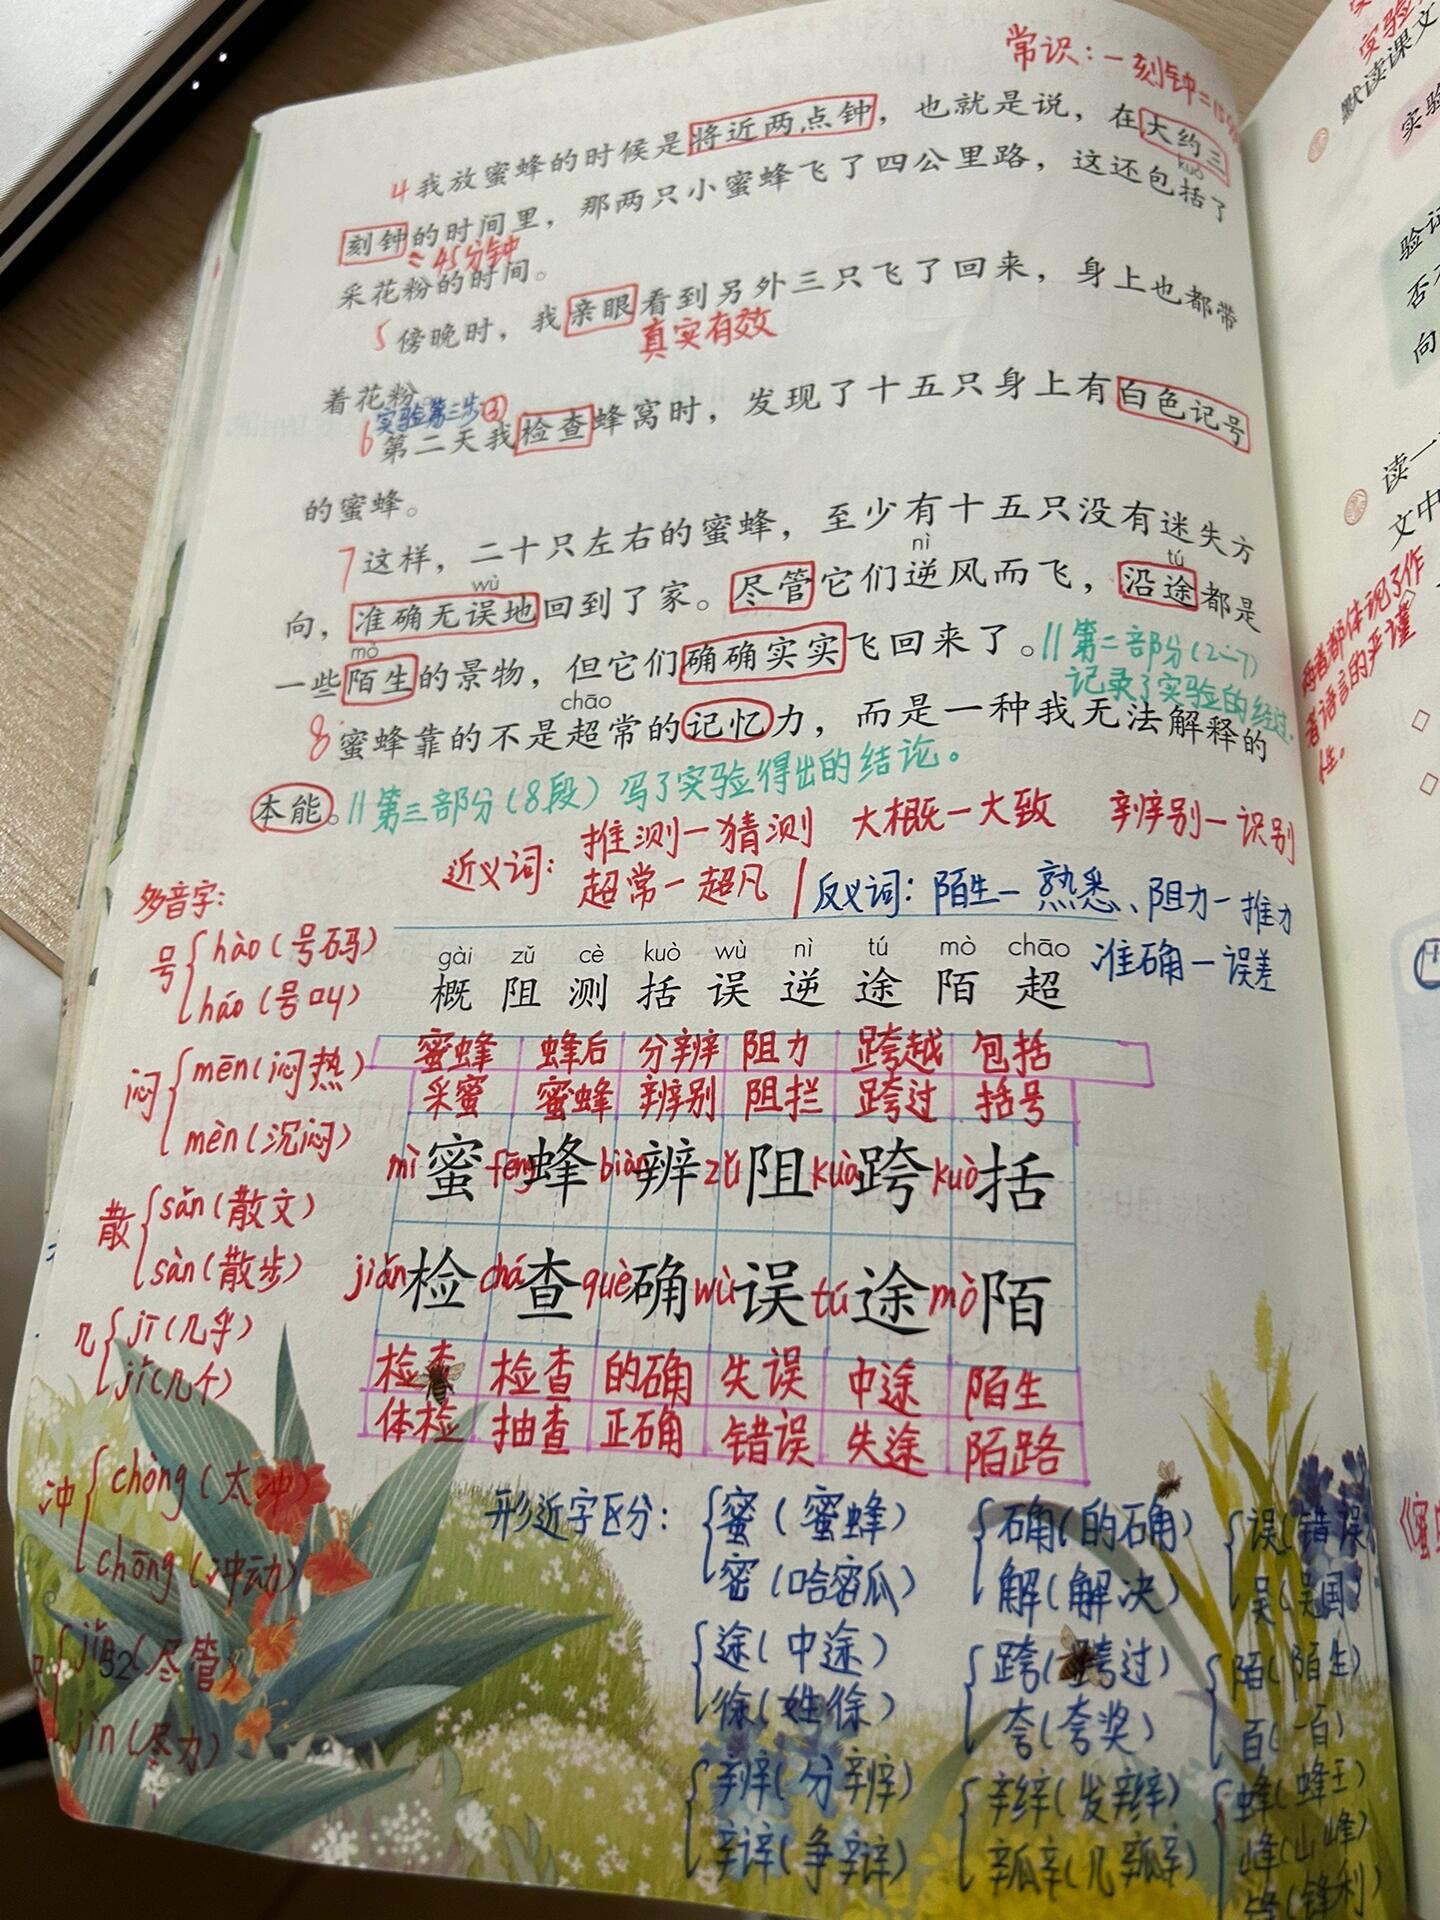 常识：一刻钟=15分
4 我放蜜蜂的时候是将近两点钟，也就是说，在大约三
kuò
刻钟的时间里，那两只小蜜蜂飞了四公里路，这还包括了
=45分钟
采花粉的时间。
5 傍晚时，我亲眼看到另外三只飞了回来，身上也都带
真实有效
着花粉。
实验第三步③
6 第二天我检查蜂窝时，发现了十五只身上有白色记号
的蜜蜂。
7 这样，二十只左右的蜜蜂，至少有十五只没有迷失方
wù nì tú
向，准确无误地回到了家。尽管它们逆风而飞，沿途都是
mò
一些陌生的景物，但它们确确实实飞回来了。||第二部分(2—7)
记录了实验的经过.
chāo
8 蜜蜂靠的不是超常的记忆力，而是一种我无法解释的
本能。||第三部分(8段)写了实验得出的结论。
近义词：推测—猜测 大概—大致 辨别—识别
超常—超凡 | 反义词：陌生—熟悉、阻力—推力
准确—误差
多音字：
号 hào(号码)
háo(号叫)
闷 mēn(闷热)
mèn(沉闷)
散 sǎn(散文)
sàn(散步)
几 jī(几乎)
jǐ(几个)
冲 chòng(太冲)
chōng(冲动)
jǐn(尽管)
jìn(尽力)
gài zǔ cè kuò wù nì tú mò chāo
概 阻 测 括 误 逆 途 陌 超
蜜蜂 蜂后 分辨 阻力 跨越 包括
采蜜 蜜蜂 辨别 阻拦 跨过 括号
mì蜜 fēng蜂 biàn辨 zǔ阻 kuà跨 kuò括
jiǎn检 chá查 què确 wù误 tú途 mò陌
检查 检查 的确 失误 中途 陌生
体检 抽查 正确 错误 失途 陌路
形近字区分：蜜(蜜蜂) 确(的确) 误(错误)
密(哈密瓜) 解(解决) 吴(吴国)
途(中途) 跨(跨过) 陌(陌生)
徐(姓徐) 夸(夸奖) 百(一百)
辨(分辨) 辫(发辫) 蜂(蜂王)
辩(争辩) 瓣(几瓣) 峰(山峰)
锋(锋利)
52
默读课文
实验
验证
否
向
读一
文中
两者都体现了作
者语言的严谨
性。